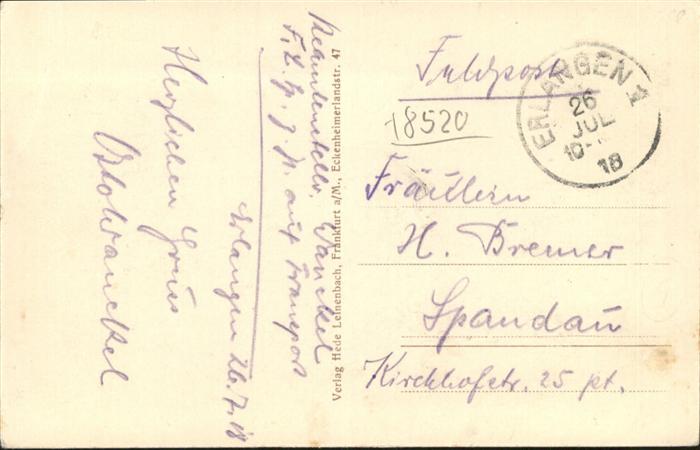 Feldpost
18520
ERLANGEN 1
26
JUL
10-
18
Fräulein
H. Bremer
Spandau
Kirchhofstr. 25 pt.
Verlag Hede Leinenbach, Frankfurt a/M., Eckenheimerlandstr. 47
Wanckel
F. L. z. auf Transport
Erlangen 26.7.18
Herzlichen Gruss
Wanckel